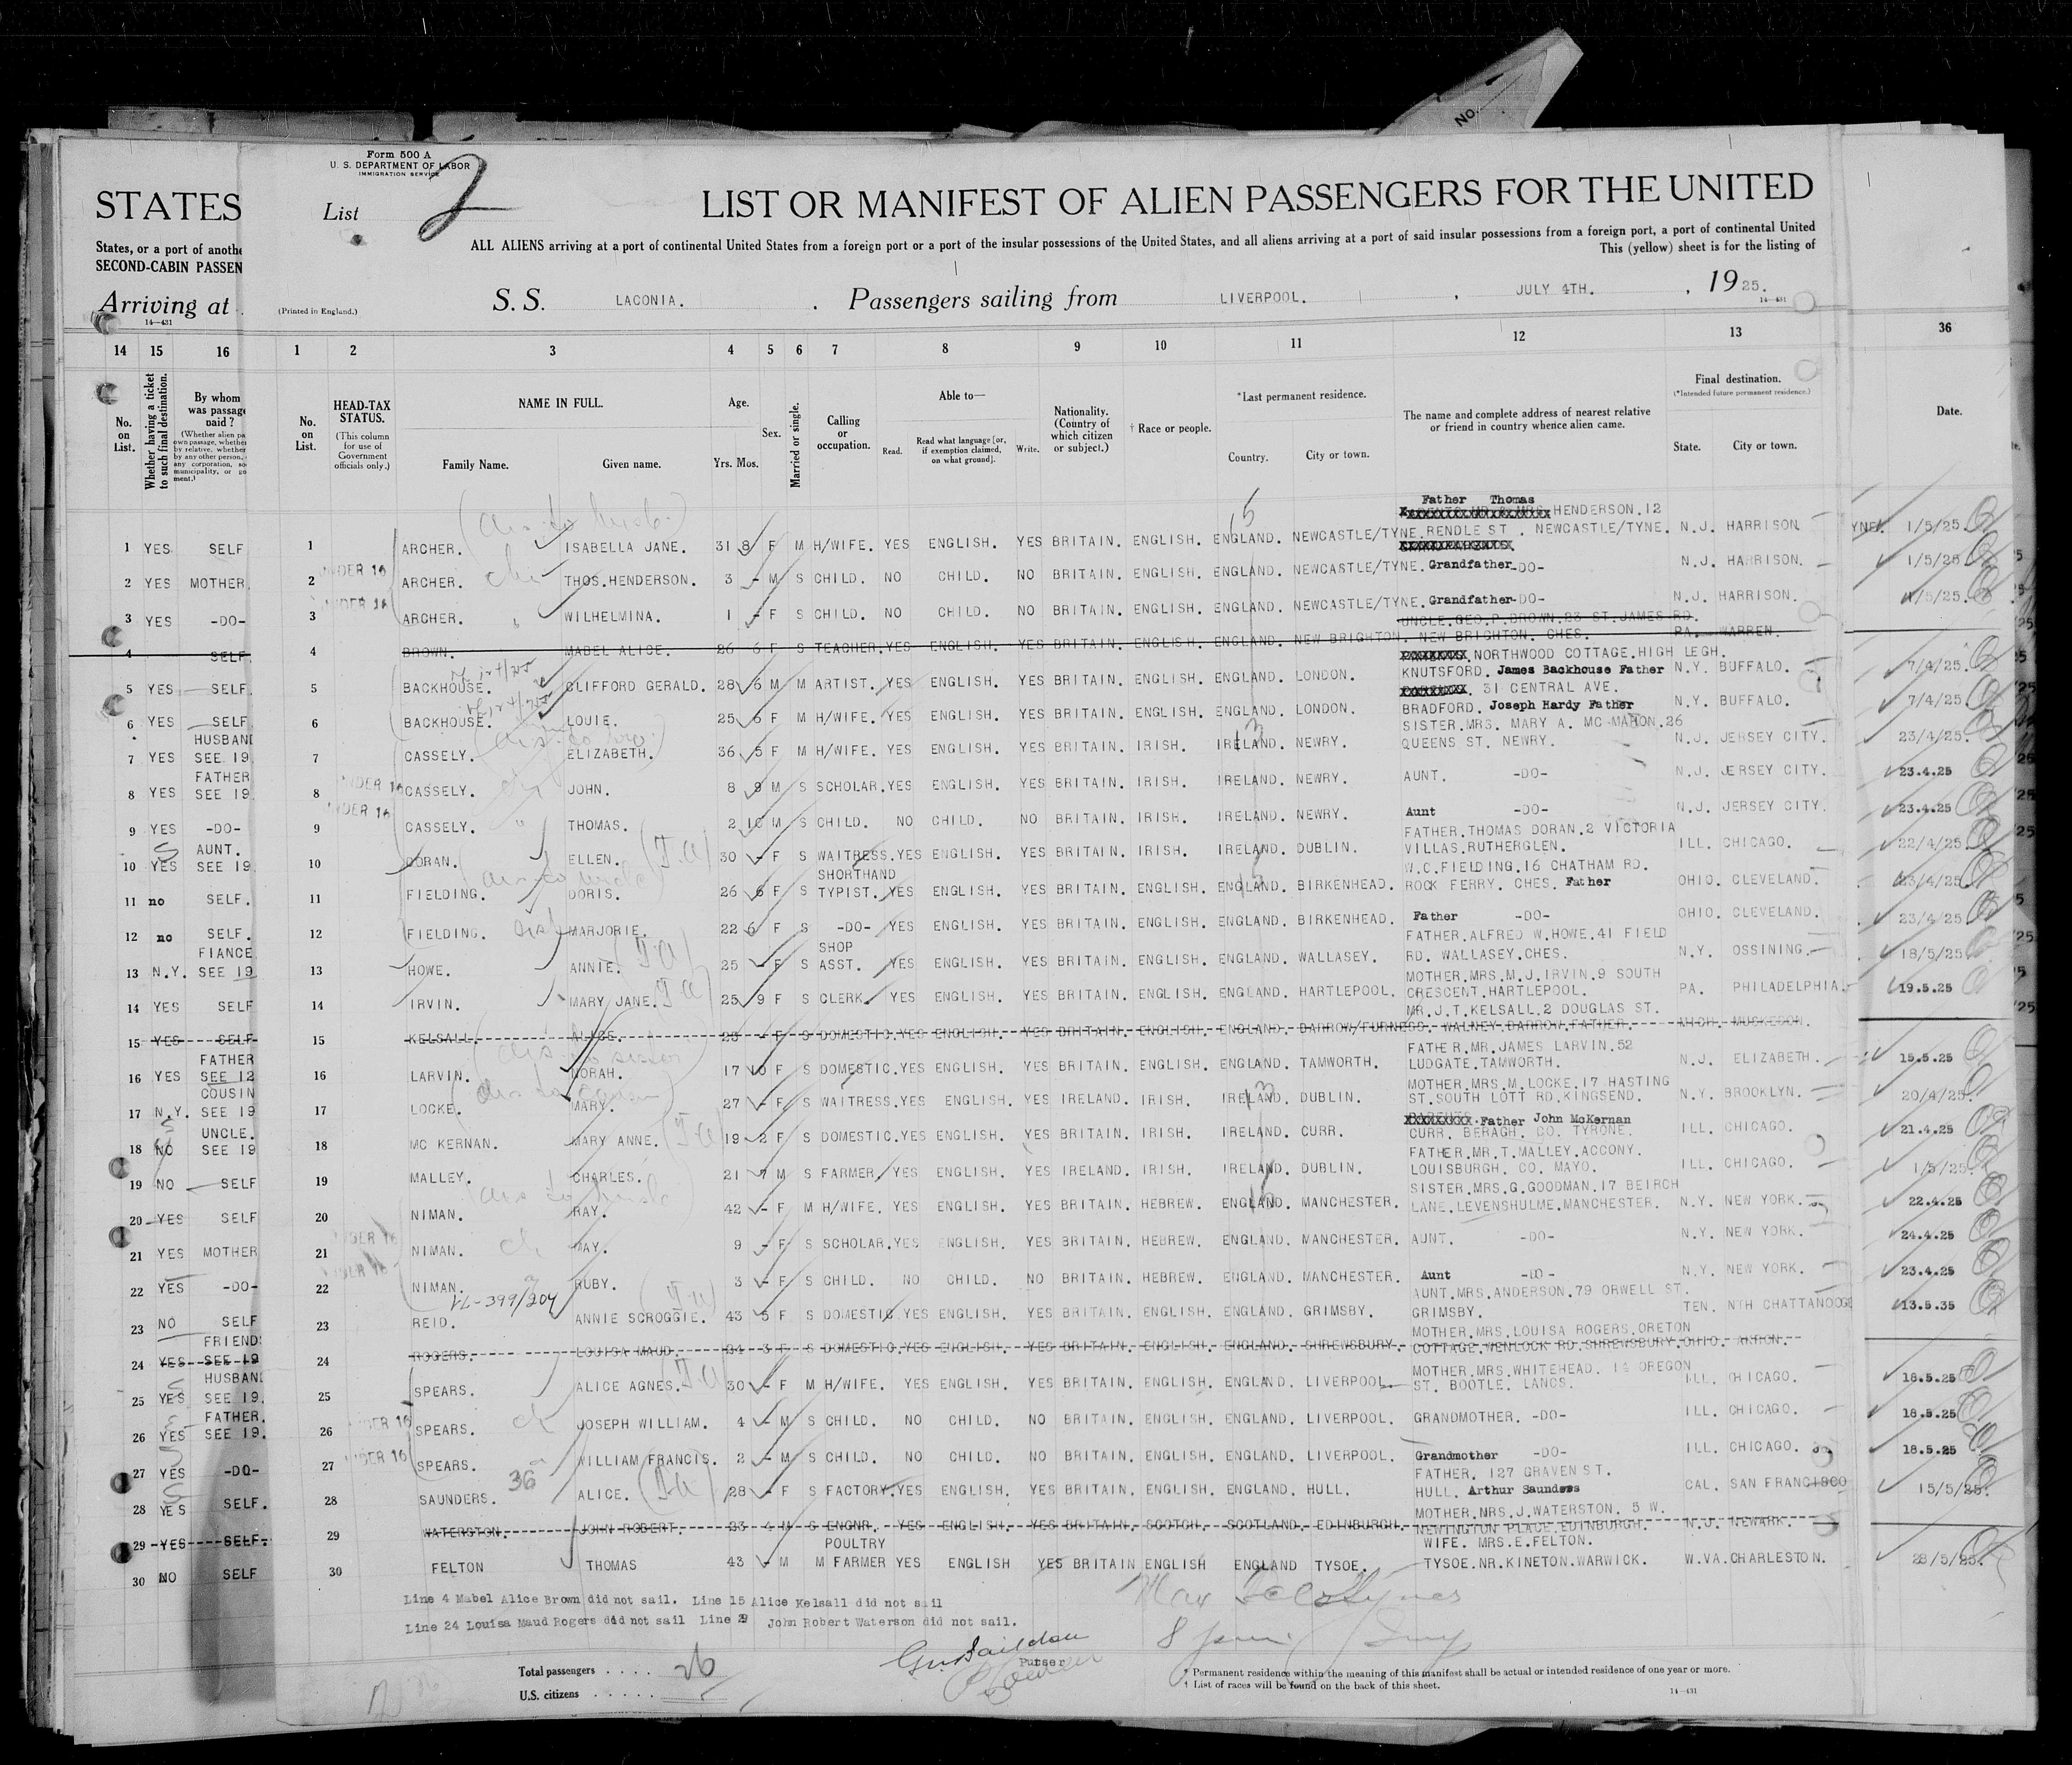 No.
Form 500 A
U. S. DEPARTMENT OF LABOR
IMMIGRATION SERVICE
STATES
List 2
LIST OR MANIFEST OF ALIEN PASSENGERS FOR THE UNITED
States, or a port of anothe
ALL ALIENS arriving at a port of continental United States from a foreign port or a port of the insular possessions of the United States, and all aliens arriving at a port of said insular possessions from a foreign port, a port of continental United
SECOND-CABIN PASSEN
This (yellow) sheet is for the listing of
Arriving at
(Printed in England.)
S. S. LACONIA. Passengers sailing from LIVERPOOL. , JULY 4TH. , 1925.
14—431 14—431
14 15 16 1 2 3 4 5 6 7 8 9 10 11 12 13 36
No. on List.
Whether having a ticket to such final destination.
By whom was passage paid ?
(Whether alien pa
own passage, whether
by relative, whether
by any other person,
any corporation, so
municipality, or go
ment.)
No. on List.
HEAD-TAX STATUS.
(This column for use of Government officials only.)
NAME IN FULL.
Family Name. Given name.
Age.
Yrs. Mos.
Sex.
Married or single.
Calling or occupation.
Able to—
Read. Read what language [or, if exemption claimed, on what ground]. Write.
Nationality. (Country of which citizen or subject.)
† Race or people.
*Last permanent residence.
Country. City or town.
The name and complete address of nearest relative or friend in country whence alien came.
Final destination.
(*Intended future permanent residence.)
State. City or town.
Date.
Father Thomas
HENDERSON.12
1 YES SELF 1 ARCHER. ISABELLA JANE. 31 8 F M H/WIFE. YES ENGLISH. YES BRITAIN. ENGLISH. ENGLAND. NEWCASTLE/TYNE. RENDLE ST . NEWCASTLE/TYNE. N.J. HARRISON YNE. 1/5/25.
2 YES MOTHER 2 UNDER 16 ARCHER. ch THOS.HENDERSON. 3 - M S CHILD. NO CHILD. NO BRITAIN. ENGLISH. ENGLAND. NEWCASTLE/TYNE. Grandfather-DO- N.J. HARRISON. 1/5/25
3 YES -DO- 3 UNDER 16 ARCHER. " WILHELMINA. 1 - F S CHILD. NO CHILD. NO BRITAIN. ENGLISH. ENGLAND. NEWCASTLE/TYNE. Grandfather-DO- N.J. HARRISON. 1/5/25.
UNCLE.GEO.P.BROWN.23 ST.JAMES RD.
4 SELF. 4 BROWN. MABEL ALICE. 26 6 F S TEACHER.YES ENGLISH. YES BRITAIN. ENGLISH. ENGLAND. NEW BRIGHTON. NEW BRIGHTON. CHES. PA. WARREN.
NORTHWOOD COTTAGE.HIGH LEGH.
5 YES SELF. 5 BACKHOUSE. CLIFFORD GERALD. 28 6 M M ARTIST. YES ENGLISH. YES BRITAIN. ENGLISH. ENGLAND. LONDON. KNUTSFORD. James Backhouse Father N.Y. BUFFALO. 7/4/25.
31 CENTRAL AVE.
6 YES SELF. 6 BACKHOUSE. LOUIE. 25 6 F M H/WIFE. YES ENGLISH. YES BRITAIN. ENGLISH. ENGLAND. LONDON. BRADFORD. Joseph Hardy Father N.Y. BUFFALO. 7/4/25.
HUSBAND SISTER.MRS. MARY A. MC MAHON.26
7 YES SEE 19. 7 CASSELY. ELIZABETH. 36 5 F M H/WIFE. YES ENGLISH. YES BRITAIN. IRISH. IRELAND. NEWRY. QUEENS ST. NEWRY. N.J. JERSEY CITY. 23/4/25.
FATHER
8 YES SEE 19. 8 UNDER 16 CASSELY. ch JOHN. 8 9 M S SCHOLAR.YES ENGLISH. YES BRITAIN. IRISH. IRELAND. NEWRY. AUNT. -DO- N.J. JERSEY CITY. 23.4.25
9 YES -DO- 9 UNDER 16 CASSELY. " THOMAS. 2 10 M S CHILD. NO CHILD. NO BRITAIN. IRISH. IRELAND. NEWRY. Aunt -DO- N.J. JERSEY CITY. 23.4.25
AUNT. FATHER.THOMAS DORAN.2 VICTORIA
10 YES SEE 19. 10 DORAN. ELLEN. 30 - F S WAITRESS.YES ENGLISH. YES BRITAIN. IRISH. IRELAND. DUBLIN. VILLAS.RUTHERGLEN. ILL. CHICAGO. 22/4/25.
SHORTHAND W.C.FIELDING.16 CHATHAM RD.
11 no SELF. 11 FIELDING. DORIS. 26 6 F S TYPIST. YES ENGLISH. YES BRITAIN. ENGLISH. ENGLAND. BIRKENHEAD. ROCK FERRY. CHES. Father OHIO. CLEVELAND. 23/4/25
12 no SELF. 12 FIELDING. sist MARJORIE. 22 6 F S -DO- YES ENGLISH. YES BRITAIN. ENGLISH. ENGLAND. BIRKENHEAD. Father -DO- OHIO. CLEVELAND. 23/4/25
FIANCE SHOP FATHER.ALFRED W.HOWE.41 FIELD
13 N.Y. SEE 19 13 HOWE. ANNIE. 25 - F S ASST. YES ENGLISH. YES BRITAIN. ENGLISH. ENGLAND. WALLASEY. RD. WALLASEY.CHES. N.Y. OSSINING. 18/5/25.
MOTHER.MRS.M.J.IRVIN.9 SOUTH
14 YES SELF 14 IRVIN. MARY JANE. 25 9 F S CLERK. YES ENGLISH. YES BRITAIN. ENGLISH. ENGLAND. HARTLEPOOL. CRESCENT.HARTLEPOOL. PA. PHILADELPHIA. 19.5.25
MR.J.T.KELSALL.2 DOUGLAS ST.
15 YES SELF 15 KELSALL. ALICE. 23 - F S DOMESTIC.YES ENGLISH. YES BRITAIN. ENGLISH. ENGLAND. BARROW/FURNESS. WALNEY.BARROW.FATHER. MICH. MUSKEGON.
FATHER FATHER.MR.JAMES LARVIN.52
16 YES SEE 12 16 LARVIN. NORAH. 17 10 F S DOMESTIC.YES ENGLISH. YES BRITAIN. ENGLISH. ENGLAND. TAMWORTH. LUDGATE.TAMWORTH. N.J. ELIZABETH. 15.5.25
COUSIN MOTHER.MRS.M.LOCKE.17 HASTING
17 N.Y. SEE 19 17 LOCKE. MARY. 27 - F S WAITRESS.YES ENGLISH. YES IRELAND. IRISH. IRELAND. DUBLIN. ST.SOUTH LOTT RD.KINGSEND. N.Y. BROOKLYN. 20/4/25
UNCLE. Father John McKernan
18 NO SEE 19 18 MC KERNAN. MARY ANNE. 19 2 F S DOMESTIC.YES ENGLISH. YES BRITAIN. IRISH. IRELAND. CURR. CURR. BERAGH. CO. TYRONE. ILL. CHICAGO. 21.4.25
FATHER.MR.T.MALLEY.ACCONY.
19 NO SELF 19 MALLEY. CHARLES. 21 7 M S FARMER. YES ENGLISH. YES IRELAND. IRISH. IRELAND. DUBLIN. LOUISBURGH. CO. MAYO. ILL. CHICAGO. 1/5/25.
SISTER.MRS.G.GOODMAN.17 BEIRCH
20 YES SELF 20 NIMAN. RAY. 42 - F M H/WIFE. YES ENGLISH. YES BRITAIN. HEBREW. ENGLAND. MANCHESTER. LANE.LEVENSHULME.MANCHESTER. N.Y. NEW YORK. 22.4.25
21 YES MOTHER 21 UNDER 16 NIMAN. ch MAY. 9 - F S SCHOLAR.YES ENGLISH. YES BRITAIN. HEBREW. ENGLAND. MANCHESTER. AUNT. -DO- N.Y. NEW YORK. 24.4.25
22 YES -DO- 22 UNDER 16 NIMAN. RUBY. 3 - F S CHILD. NO CHILD. NO BRITAIN. HEBREW. ENGLAND. MANCHESTER. Aunt -DO- N.Y. NEW YORK. 23.4.25
VL-399/204 AUNT.MRS.ANDERSON.79 ORWELL ST.
23 NO SELF 23 REID. ANNIE SCROGGIE. 43 5 F S DOMESTIC YES ENGLISH. YES BRITAIN. ENGLISH. ENGLAND. GRIMSBY. GRIMSBY. TEN. NTH CHATTANOOGE 13.5.35
FRIEND: MOTHER.MRS.LOUISA ROGERS.ORETON
24 YES SEE 19 24 ROGERS. LOUISA MAUD. 24 3 F S DOMESTIC.YES ENGLISH. YES BRITAIN. ENGLISH. ENGLAND. SHREWSBURY. COTTAGE.WENLOCK RD.SHREWSBURY.OHIO. AKRON.
HUSBAND MOTHER.MRS.WHITEHEAD. 14 OREGON
25 YES SEE 19. 25 SPEARS. ALICE AGNES. 30 - F M H/WIFE. YES ENGLISH. YES BRITAIN. ENGLISH. ENGLAND. LIVERPOOL. ST. BOOTLE. LANCS. ILL. CHICAGO. 18.5.25
FATHER.
26 YES SEE 19. 26 UNDER 16 SPEARS. ch JOSEPH WILLIAM. 4 - M S CHILD. NO CHILD. NO BRITAIN. ENGLISH. ENGLAND. LIVERPOOL. GRANDMOTHER. -DO- ILL. CHICAGO. 18.5.25
27 YES -DO- 27 UNDER 16 SPEARS. WILLIAM FRANCIS. 2 - M S CHILD. NO CHILD. NO BRITAIN. ENGLISH. ENGLAND. LIVERPOOL. Grandmother -DO- ILL. CHICAGO. 18.5.25
36 FATHER. 127 GRAVEN ST.
28 YES SELF. 28 SAUNDERS. ALICE. 28 - F S FACTORY.YES ENGLISH. YES BRITAIN. ENGLISH. ENGLAND. HULL. HULL. Arthur Saunders CAL. SAN FRANCISCO 15/5/25.
MOTHER.MRS.J.WATERSTON. 5 W.
29 YES SELF. 29 WATERSTON. JOHN ROBERT. 23 4 M S ENGNR. YES ENGLISH. YES BRITAIN. SCOTCH. SCOTLAND. EDINBURGH. NEWINGTON PLACE.EDINBURGH. N.J. NEWARK.
POULTRY WIFE. MRS.E.FELTON.
30 NO SELF 30 FELTON THOMAS 43 - M M FARMER YES ENGLISH YES BRITAIN ENGLISH ENGLAND TYSOE. TYSOE.NR.KINETON.WARWICK. W.VA.CHARLESTON. 28/5/25.
Line 4 Mabel Alice Brown did not sail. Line 15 Alice Kelsall did not sail
Line 24 Louisa Maud Rogers did not sail Line 29 John Robert Waterson did not sail.
Purser
Total passengers . . . . 26
U.S. citizens . . . . . .
* Permanent residence within the meaning of this manifest shall be actual or intended residence of one year or more.
† List of races will be found on the back of this sheet.
14—431